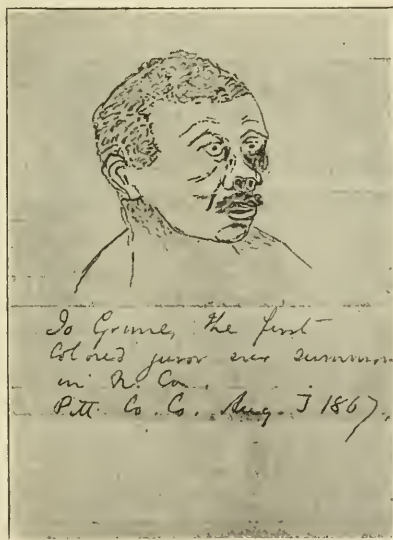 Jo Grime, the first
Colored juror ever summon
in N. Ca.
Pitt. Co. Co. Aug. T 1867.